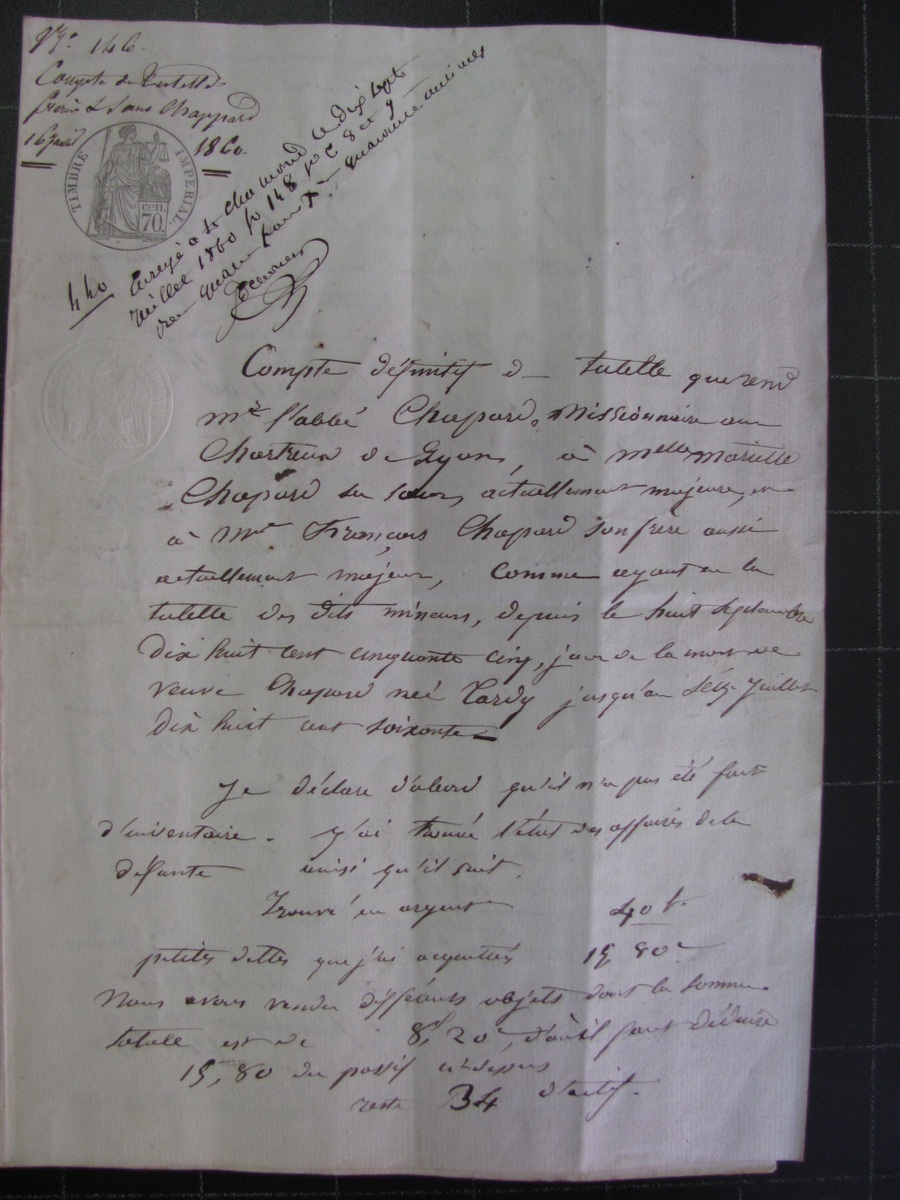 N° 146.
Compte de Tutelle
frère & Sœur Chappard
16 1860.
TIMBRE IMPERIAL
cen. 70.
440
Enregé à St Chamond le dix sept
Juillet 1860 fo 148 Ro C 8 et 9
quarante centimes
Compte définitif de tutelle que rend
Mr l'abbé Chapard, Missionnaire aux
Chartreux de Lyon, à Melle Mariette
Chapard sa sœur, actuellement majeure, et
à Mr François Chapard son frère aussi
actuellement majeur, comme ayant eu la
tutelle des dits mineurs, depuis le huit Septembre
dix huit cent cinquante cinq, jour de la mort de
veuve Chapard neé Tardy jusqu'au Seize Juillet
dix huit cent soixante
Je déclare d'abord qu'il n'a pas été fait
d'inventaire. J'ai trouvé l'état des affaires de la
defunte ainsi qu'il suit.
Trouvé en argent 40 f.
petites dettes que j'ai acquittés 15, 80c
Nous avons vendu différents objets dont la somme
totale est de 8f, 20c, d'où il faut déduire
15, 80 du passif ci-dessus
reste 34 d'actif.